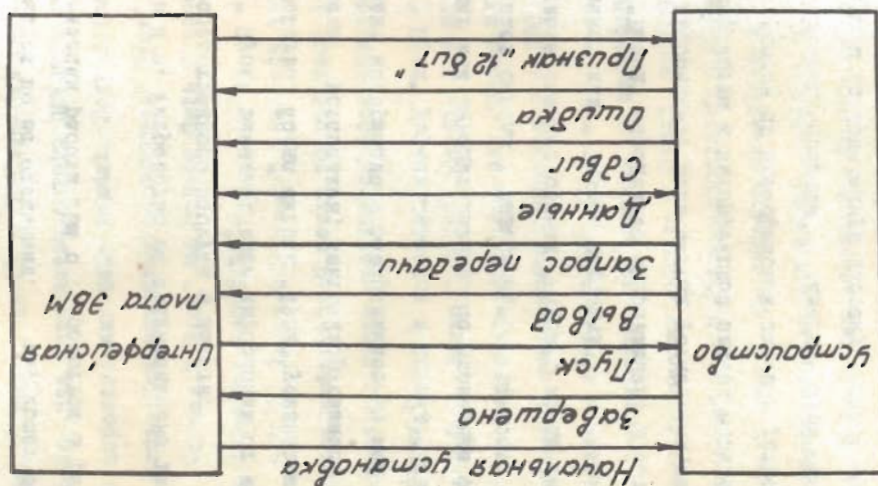 Начальная установка
Завершено
Пуск
Вывод
Запрос передачи
Данные
Сдвиг
Ошибка
Признак „12 бит"
Устройство
Интерфейсная
плата ЭВМ